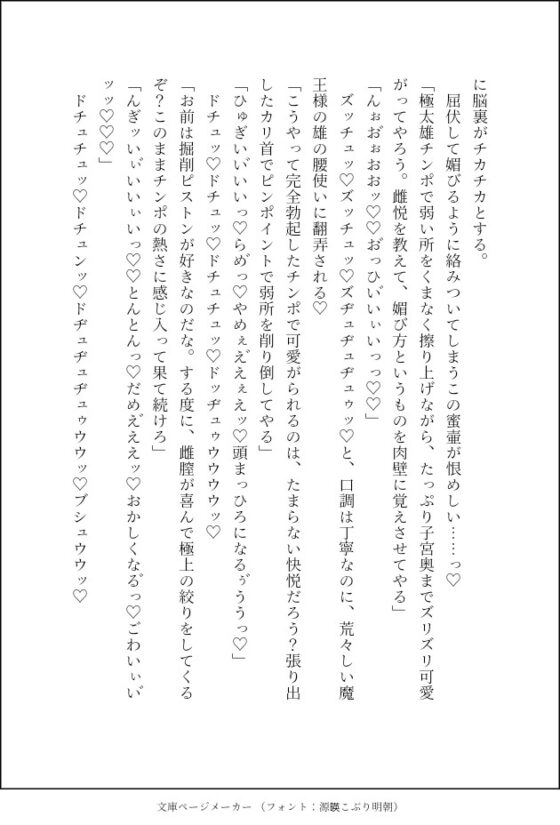 に脳裏がチカチカとする。
屈伏して媚びるように絡みついてしまうこの蜜壷が恨めしい……っ♡
「極太雄チンポで弱い所をくまなく擦り上げながら、たっぷり子宮奥までズリズリ可愛
がってやろう。雌悦を教えて、媚び方というものを肉壁に覚えさせてやる」
「んぉお゛ぉおおッ♡♡お゛っひい゛いぃいっっ♡♡」
ズッチュッ♡ズッチュッ♡ズヂュヂュヂュゥッ♡と、口調は丁寧なのに、荒々しい魔
王様の雄の腰使いに翻弄される♡
「こうやって完全勃起したチンポで可愛がられるのは、たまらない快悦だろう？張り出
したカリ首でピンポイントで弱所を削り倒してやる」
「ひゅぎいい゛いいっ♡らめ゛っ♡やめぇえ゛えぇえッ♡頭まっひろになるぅ゛ううっ♡」
ドチュッ♡ドチュッ♡ドチュチュッ♡ドッヂュゥウウウウッ♡
「お前は掘削ピストンが好きなのだな。する度に、雌膣が喜んで極上の絞りをしてくる
ぞ？このままチンポの熱さに感じ入って果て続けろ」
「んぎッいぃ゛いいぃいっ♡♡とんとんっ♡だめえ゛ええッ♡おかしくなる゛っ♡ごわいぃぃい゛
ッッ♡♡♡」
ドチュチュッ♡ドチュンッ♡ドヂュヂュヂュゥウウッ♡ブシュウウッ♡
文庫ページメーカー（フォント：源暎こぶり明朝）